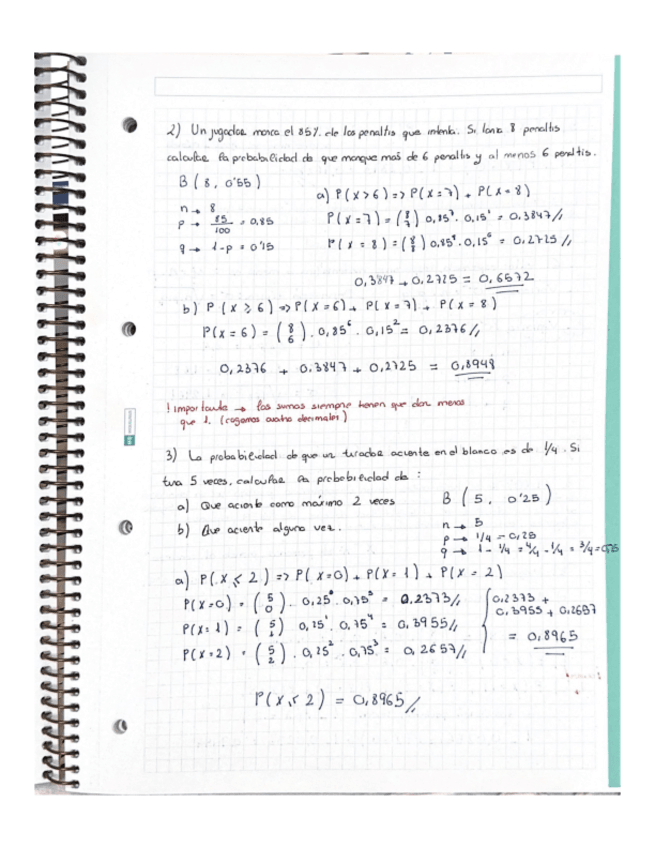 2) Un jugador marca el 85% de los penaltis que intenta. Si lanza 8 penaltis
calcular la probabilidad de que marque más de 6 penaltis y al menos 6 penaltis.
B ( 8, 0'55 )
a) P(X>6) => P(X=7) + P(X=8)
n → 8
P(X=7) = (8 7) 0,85⁷ . 0,15¹ = 0,3847//
p → 85/100 = 0,85
P(X=8) = (8 8) 0,85⁸ . 0,15⁰ = 0,2725//
q → 1-p = 0'15
0,3847 + 0,2725 = 0,6572
b) P (X ≥ 6) => P(X=6) + P(X=7) + P(X=8)
P(X=6) = (8 6) . 0,85⁶ . 0,15² = 0,2376//
0,2376 + 0,3847 + 0,2725 = 0,8948
! importante → las sumas siempre tienen que dar menos
que 1. (cogemos cuatro decimales)
3) La probabilidad de que un tirador acierte en el blanco es de 1/4. Si
tira 5 veces, calcular la probabilidad de :
a) Que acierte como máximo 2 veces
B ( 5, 0'25 )
b) Que acierte alguna vez.
n → 5
p → 1/4 = 0,25
q → 1 - 1/4 = 4/4 - 1/4 = 3/4 =
a) P(X ≤ 2) => P(X=0) + P(X=1) + P(X=2)
P(X=0) = (5 0) . 0,25⁰ . 0,75⁵ = 0.2373//
P(X=1) = (5 1) 0,25¹ . 0,75⁴ = 0,3955//
P(X=2) = (5 2) . 0,25² . 0,75³ = 0,2637//
0,2373 +
0,3955 + 0,2637
= 0,8965
P(X ≤ 2) = 0,8965//